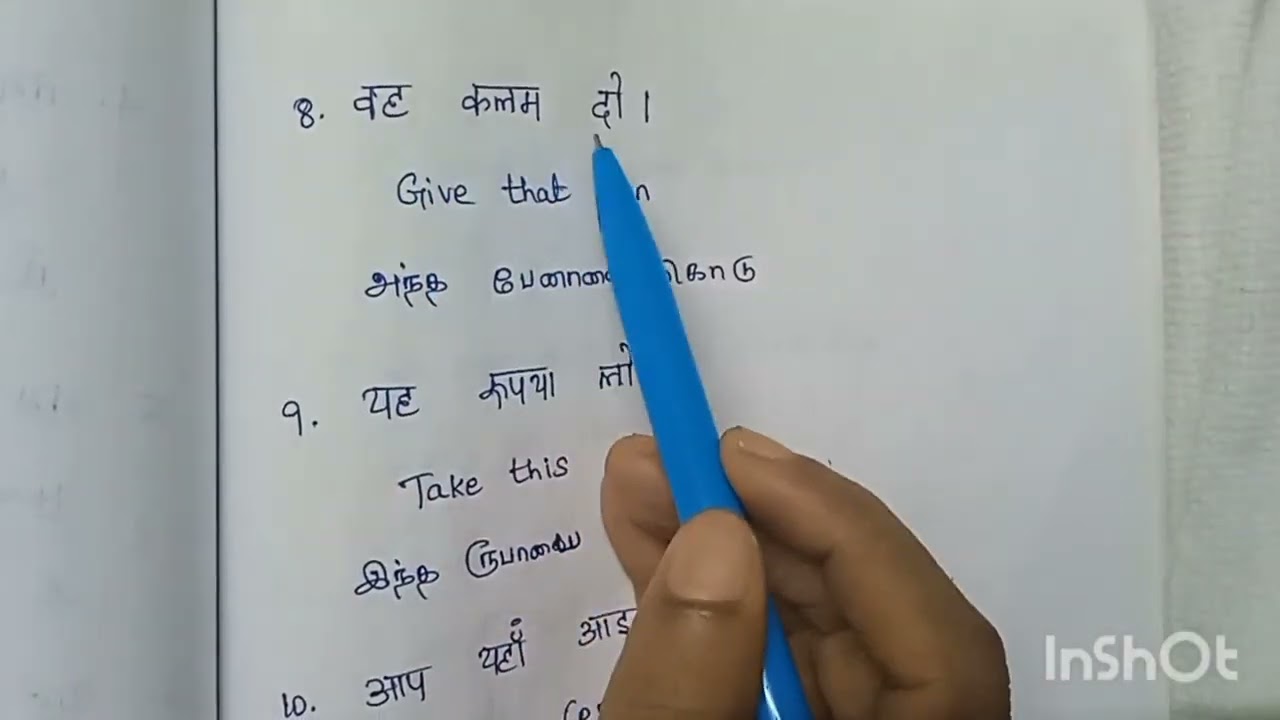 8. वह कलम दो।
Give that
அந்த கொடு
9. यह रुपया लो
Take this
இந்த ரூபாயை
10. आप यहाँ
InShOt